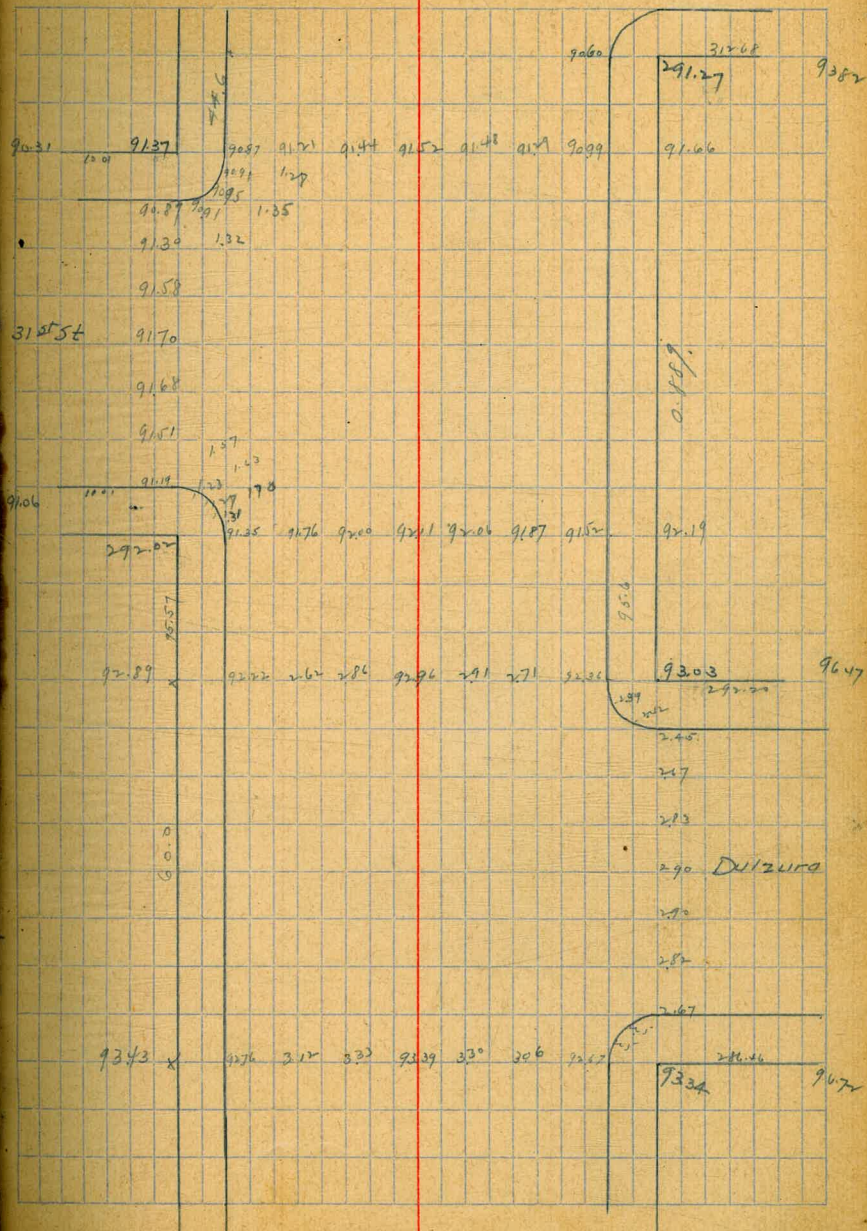 9060 312.68
291.27 9382
90.31 91.37 9087 91.21 91.44 91.52 91.48 91.29 9099 91.66
10.01
9091 1.28
9095
90.89 9091 1.35
91.30 1.32
91.58
31st St 91.70
0.88%
91.68
91.51
1.57
1.63
91.19 1.23 170
91.06 10.01 1.27
1.31
91.35 91.76 92.00 92.11 92.06 91.87 91.52 92.19
292.02
95.57 95.6
92.89 x 92.22 2.62 2.86 92.96 2.91 2.71 92.36 93.03 96.47
292.20
2.39
2.45
2.67
2.83
60.0 2.90 Dulzura
2.90
2.82
2.67
93.43 x 92.76 3.12 3.33 93.39 3.30 3.06 92.67 286.46
93.34 96.72